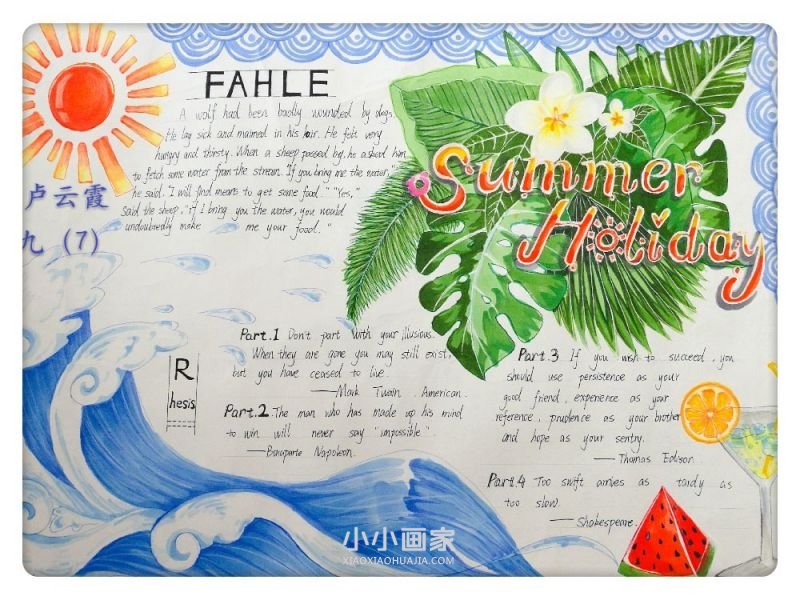 FAHLE
A wolf had been badly wounded by dogs.
He lay sick and maimed in his lair. He felt very
hungry and thirsty. When a sheep passed by, he asked him
to fetch some water from the stream. "If you bring me the water,"
he said. "I will find means to get some food." "Yes,"
said the sheep, "if I bring you the water, you would
undoubtedly make me your food."
卢云霞
九 (7)
Summer
Holiday
Part.1 Don't part with your illusions.
When they are gone you may still exist,
but you have ceased to live.
—Mark Twain. American.
R
hesis
Part.2 The man who has made up his mind
to win will never say "impossible".
—Bonaparte Napoleon.
Part.3 If you wish to succeed, you
should use persistence as your
good friend, experience as your
reference, prudence as your brother
and hope as your sentry.
—Thomas Edison.
Part.4 Too swift arrives as tardy as
too slow.
—Shakespeare.
小小画家
XIAOXIAOHUAJIA.COM